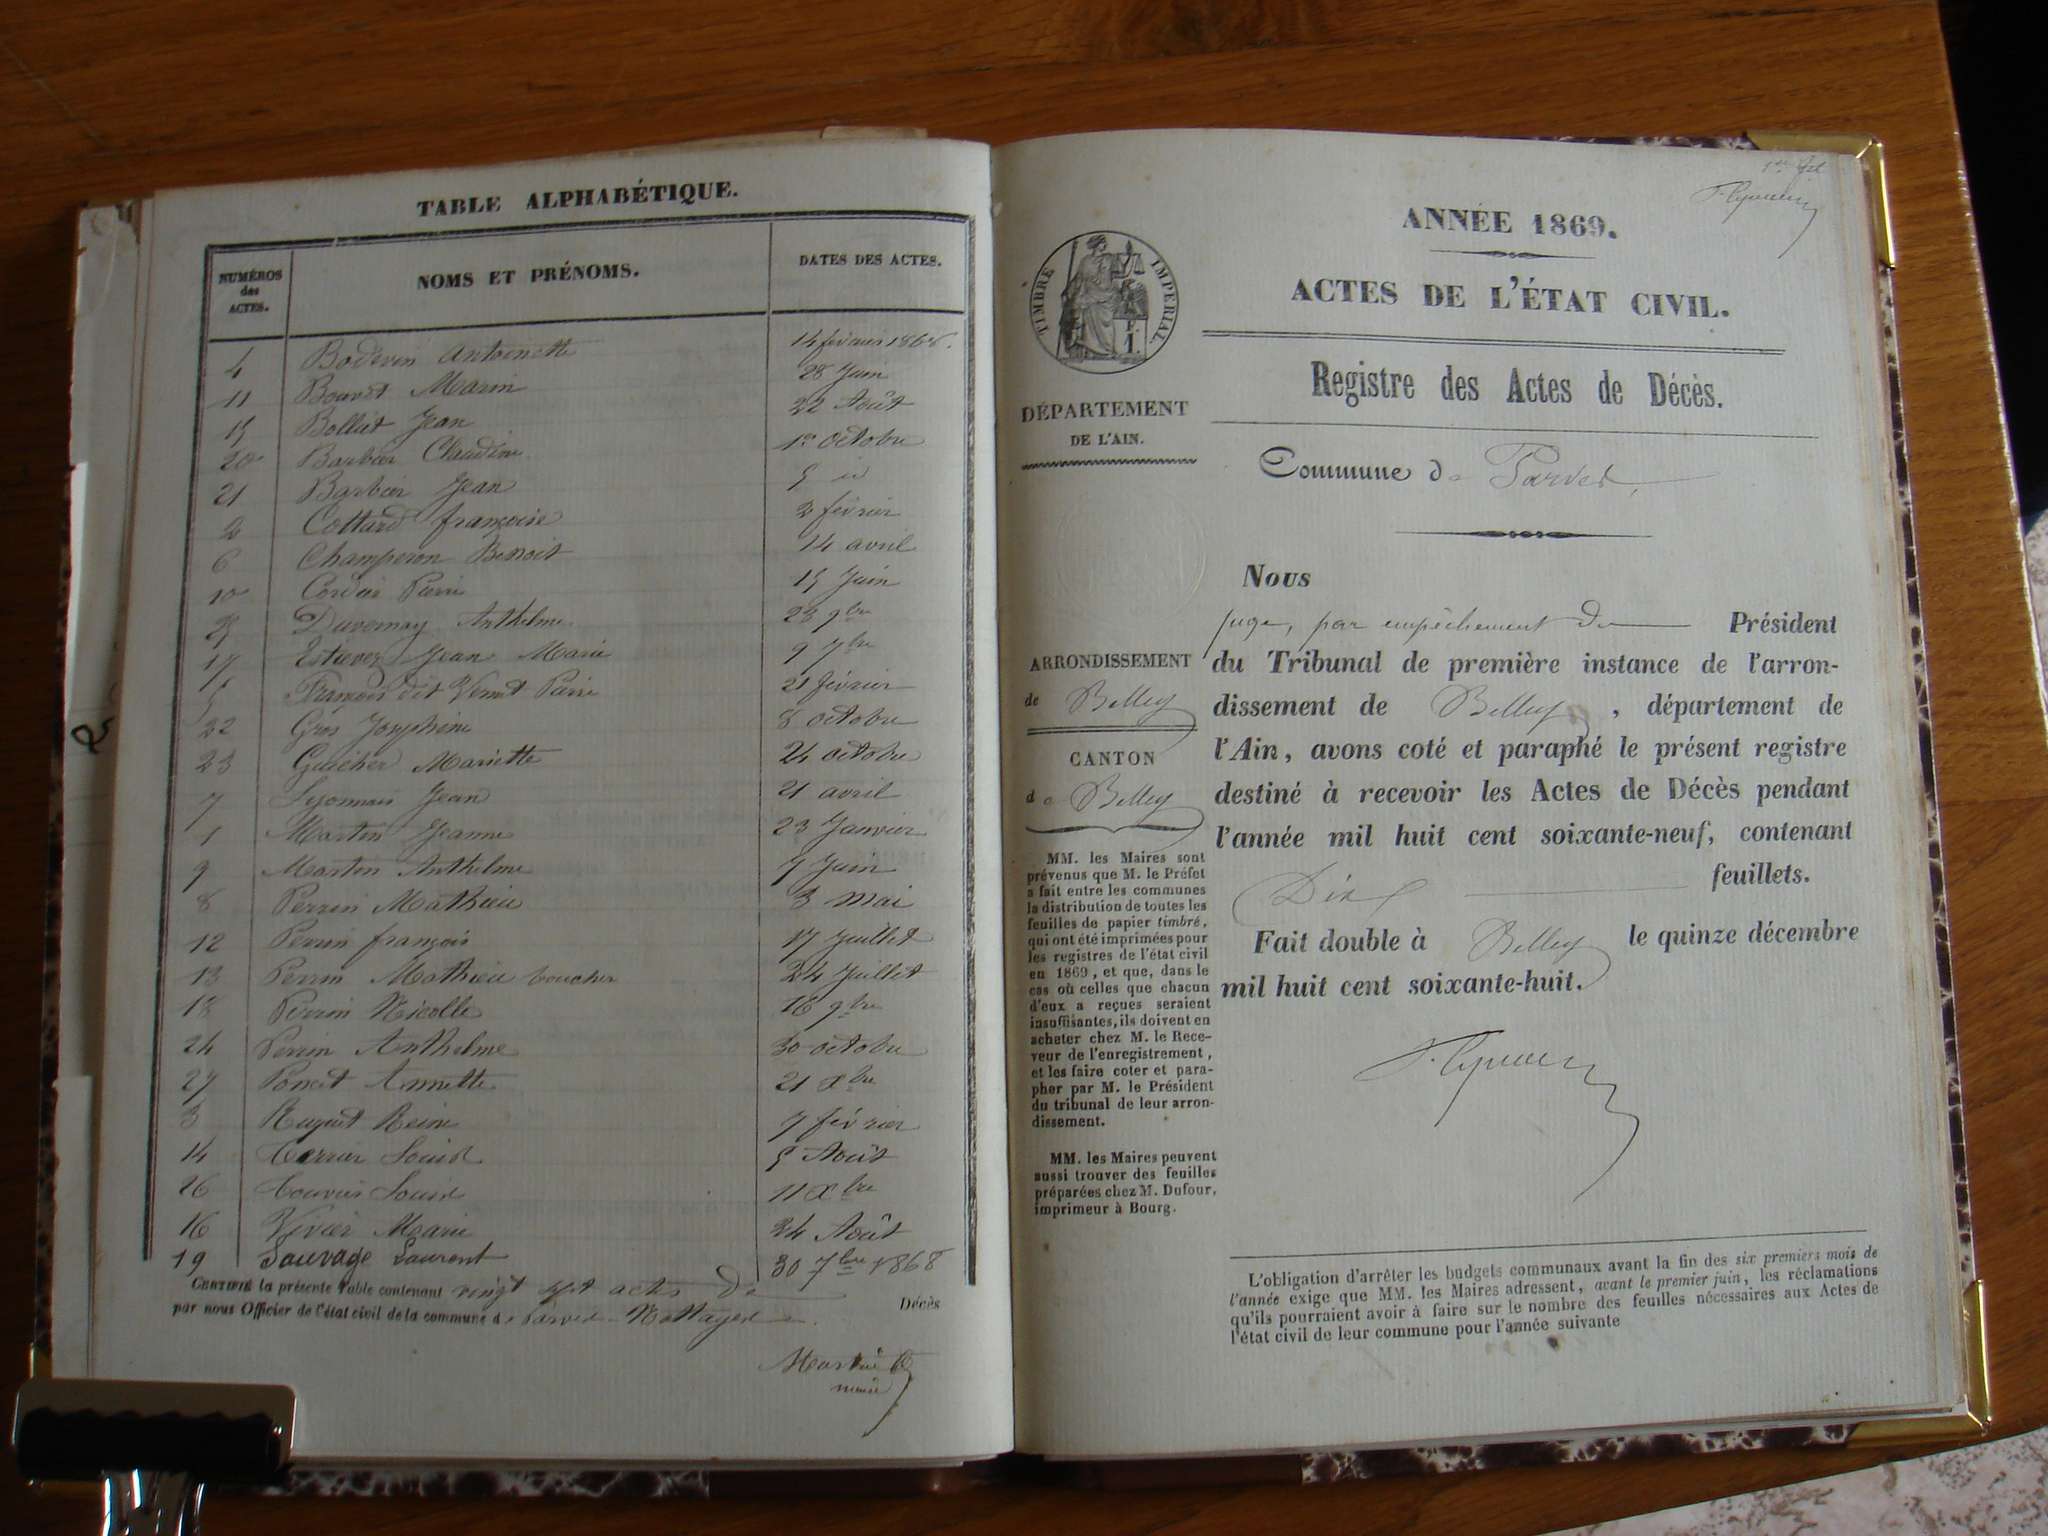 TABLE ALPHABÉTIQUE.
NUMÉROS des ACTES. NOMS ET PRÉNOMS. DATES DES ACTES.
4 Antoinette 14 février 1868.
11 Marin 28 Juin
15 Jean 22 Août
20 Barbier Claudine 1er octobre
21 Barbier Jean 5 id
2 Cottard françoise 3 février
6 Champeron Benoit 14 avril
10 Cordier Pierre 15 Juin
25 Duvernay Anthelme 23 9bre
17 Jean Marie 9 7bre
5 François dit Pierre 21 février
22 Gros Josephine 8 octobre
23 Guicher Mariette 24 octobre
7 Lyonnais Jean 21 avril
1 Martin Jeanne 23 Janvier
9 Martin Anthelme 7 Juin
8 Perrin Mathieu 3 mai
12 Perrin françois 17 Juillet
13 Perrin Mathieu boucher 24 Juillet
18 Perrin Nicolle 16 9bre
24 Perrin Anthelme 30 octobre
27 Poncet Annette 21 Xbre
3 Reine 9 février
14 Louise 5 Août
26 Louise 11 Xbre
16 Vivier Marie 24 Août
19 Sauvage Laurent 30 7bre 1868
CERTIFIÉ la présente Table contenant vingt sept actes de Décès
par nous Officier de l'état civil de la commune de Parves-Nattages
maire
ANNÉE 1869.
ACTES DE L'ÉTAT CIVIL.
TIMBRE IMPÉRIAL
Registre des Actes de Décès.
DÉPARTEMENT
DE L'AIN.
Commune de Parves
ARRONDISSEMENT
de Belley
CANTON
de Belley
MM. les Maires sont
prévenus que M. le Préfet
a fait entre les communes
la distribution de toutes les
feuilles de papier timbré,
qui ont été imprimées pour
les registres de l'état civil
en 1869, et que, dans le
cas où celles que chacun
d'eux a reçues seraient
insuffisantes, ils doivent en
acheter chez M. le Rece-
veur de l'enregistrement,
et les faire coter et para-
pher par M. le Président
du tribunal de leur arron-
dissement.
MM. les Maires peuvent
aussi trouver des feuilles
préparées chez M. Dufour,
imprimeur à Bourg.
Nous
juge, par empêchement du Président
du Tribunal de première instance de l'arron-
dissement de Belley, département de
l'Ain, avons coté et paraphé le présent registre
destiné à recevoir les Actes de Décès pendant
l'année mil huit cent soixante-neuf, contenant
Dix feuillets.
Fait double à Belley le quinze décembre
mil huit cent soixante-huit.
L'obligation d'arrêter les budgets communaux avant la fin des six premiers mois de
l'année exige que MM. les Maires adressent, avant le premier juin, les réclamations
qu'ils pourraient avoir à faire sur le nombre des feuilles nécessaires aux Actes de
l'état civil de leur commune pour l'année suivante